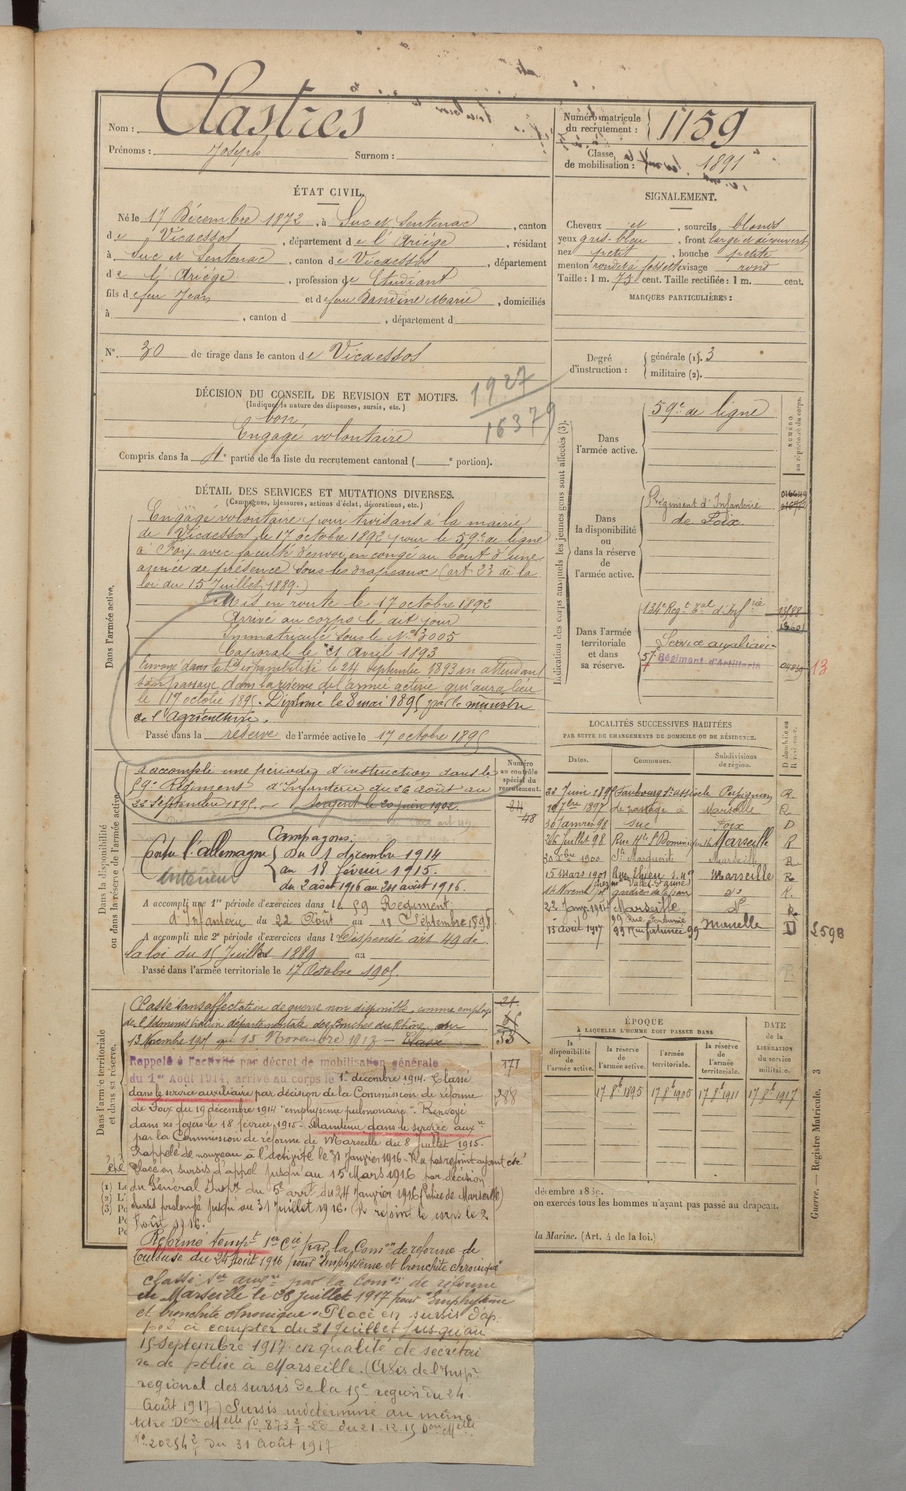 Nom : Clastres
Prénoms : Joseph Surnom :
Numéro matricule du recrutement : 1159
Classe de mobilisation : 1891
ÉTAT CIVIL.
Né le 17 Décembre 1872, à Suc et Sentenac, canton
de Vicdessos, département de l'Ariège, résidant
à Suc et Sentenac, canton de Vicdessos, département
de l'Ariège, profession de Etudiant
fils de feu Jean et de feu Dandine Marie, domiciliés
à , canton d , département d
N° 30 de tirage dans le canton de Vicdessos
SIGNALEMENT.
Cheveux et , sourcils blonds
yeux gris-bleu , front large et découvert
nez petit , bouche petite
menton rond à fossette visage rond
Taille : 1 m. 73 cent. Taille rectifiée : 1 m. cent.
MARQUES PARTICULIÈRES :
Degré d'instruction : générale (1). 3
militaire (2).
DÉCISION DU CONSEIL DE REVISION ET MOTIFS.
(Indiquer la nature des dispenses, sursis, etc.)
1927
16379
bon
Engagé volontaire
Compris dans la 4e partie de la liste du recrutement cantonal ( e portion).
DÉTAIL DES SERVICES ET MUTATIONS DIVERSES.
(Campagnes, blessures, actions d'éclat, décorations, etc.)
Dans l'armée active.
Engagé volontaire pour trois ans à la mairie
de Vicdessos le 17 octobre 1892 pour le 59e de ligne
à Foix avec faculté d'envoi en congé au bout d'une
année de présence sous les drapeaux (art. 23 de la
loi du 15 Juillet 1889.)
Mis en route le 17 octobre 1892
Arrivé au corps le dit jour
Immatriculé sous le N° 3005
Caporal le 21 Avril 1893
Envoyé dans la Disponibilité le 24 septembre 1893 en attendant
son passage dans la réserve de l'armée active qui aura lieu
le 17 octobre 1895. Diplômé le 8 mai 1895 par le ministre
de l'Agriculture.
Passé dans la réserve de l'armée active le 17 octobre 1895
Indication des corps auxquels les jeunes gens sont affectés (3).
NUMÉRO
au répertoire du corps.
Dans l'armée active.
59e de ligne
Dans la disponibilité ou dans la réserve de l'armée active.
Régiment d'Infanterie
de Foix
Dans l'armée territoriale et dans sa réserve.
134e Regt Tal d'Infrie
Service auxiliaire
57 Régiment d'Artillerie
13
LOCALITÉS SUCCESSIVES HABITÉES
PAR SUITE DE CHANGEMENTS DE DOMICILE OU DE RÉSIDENCE.
Dates. Communes. Subdivisions de région.
Perpignan R
Marseille R
30 Janvier 98 Suc Foix D
26 Juillet 98 Marseille R
1900 Ste Marguerite Marseille R
15 Mars 1901 Marseille R
Marseille do R
13 août 1917 Marseille D
2598
Dans la disponibilité ou dans la réserve de l'armée active.
Numéro au contrôle spécial du recrutement.
48
A accompli une période d'instruction dans le
59e Régiment d'Infanterie du 26 août au
22 septembre 1895. Sergent le 20 juin 1902.
Campagnes:
Contre l'Allemagne Du 1 décembre 1914
Intérieur au 18 février 1915.
du 2 août 1916 au 24 août 1916.
A accompli une 1re période d'exercices dans le 59 Régiment
d'Infanterie du 22 Août au 18 Septembre 1898
A accompli une 2e période d'exercices dans l Dispensé art. 49 de
la loi du 15 Juillet 1889 au
Passé dans l'armée territoriale le 17 Octobre 1905.
Dans l'armée territoriale et dans sa réserve.
Classé sans affectation de guerre non disponible, comme employé
de l'Administration départementale des Bouches du Rhône, du
13 Novembre 1913
Rappelé à l'activité par décret de mobilisation générale
du 1er Août 1914, arrivé au corps le 1er décembre 1914. Classé
dans le service auxiliaire par décision de la Commission de réforme
de Foix du 19 décembre 1914 "emphysème pulmonaire". Renvoyé
dans ses foyers le 18 février 1915. Maintenu dans le service auxre
par la Commission de réforme de Marseille du 8 juillet 1915.
Rappelé de nouveau à l'activité le 31 Janvier 1916. N'a pas rejoint ayant été
placé en sursis d'appel jusqu'au 15 Mars 1916 par décision
du Général du 24 Janvier 1916 (Police de Marseille)
Sursis prolongé jusqu'au 31 Juillet 1916. A rejoint le corps le 2
Août 1916.
Réformé tempre 1re Cie par la Comon de réforme de
Toulouse du 24 Août 1916 pour "Emphysème et bronchite chronique"
Classé Sce auxre par la Comon de réforme
de Marseille le 26 juillet 1917 pour "Emphysème
et bronchite chronique". Placé en sursis d'ap-
pel à compter du 31 Juillet jusqu'au
15 Septembre 1917 en qualité de secrétai-
re de police à Marseille. (Avis de l'Inspr
régional des sursis de la 15e région du 24
Août 1917) Sursis indéterminé au même
titre Don Melle
No 20254 du 31 Août 1917
777
ÉPOQUE
À LAQUELLE L'HOMME DOIT PASSER DANS
DATE DE LA LIBÉRATION du service militaire.
la disponibilité de l'armée active. la réserve de l'armée active. l'armée territoriale. la réserve de l'armée territoriale.
17 8bre 1895 17 8bre 1905 17 8bre 1911 17 8bre 1917
on exercés tous les hommes n'ayant pas passé au drapeau.
la Marine. (Art. 4 de la loi.)
Guerre. — Registre Matricule. 3